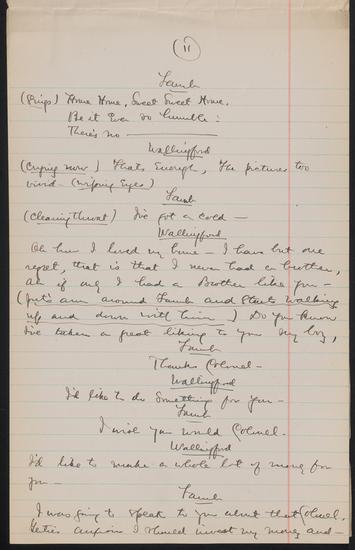 (11)
Lamb
(Sings) Home Home, Sweet Sweet Home.
Be it Ever so humble:
There's no
Wallingford
(Crying now) That's Enough, The picture's too
vivid - (wiping Eyes)
Lamb
(Clearing throat) I've got a cold -
Wallingford
Oh how I loved my home - I have but one
regret, that is that I never had a brother,
an if only I had a Brother like you -
(puts arm around Lamb and starts walking
up and down with him) Do you know
I've taken a great liking to you my boy,
Lamb
Thanks Colonel -
Wallingford
I'd like to do something for you -
Lamb
I wish you would Colonel.
Wallingford
I'd like to make a whole lot of money for
you -
Lamb
I was going to speak to you about that Colonel.
anxious I should invest my money and -